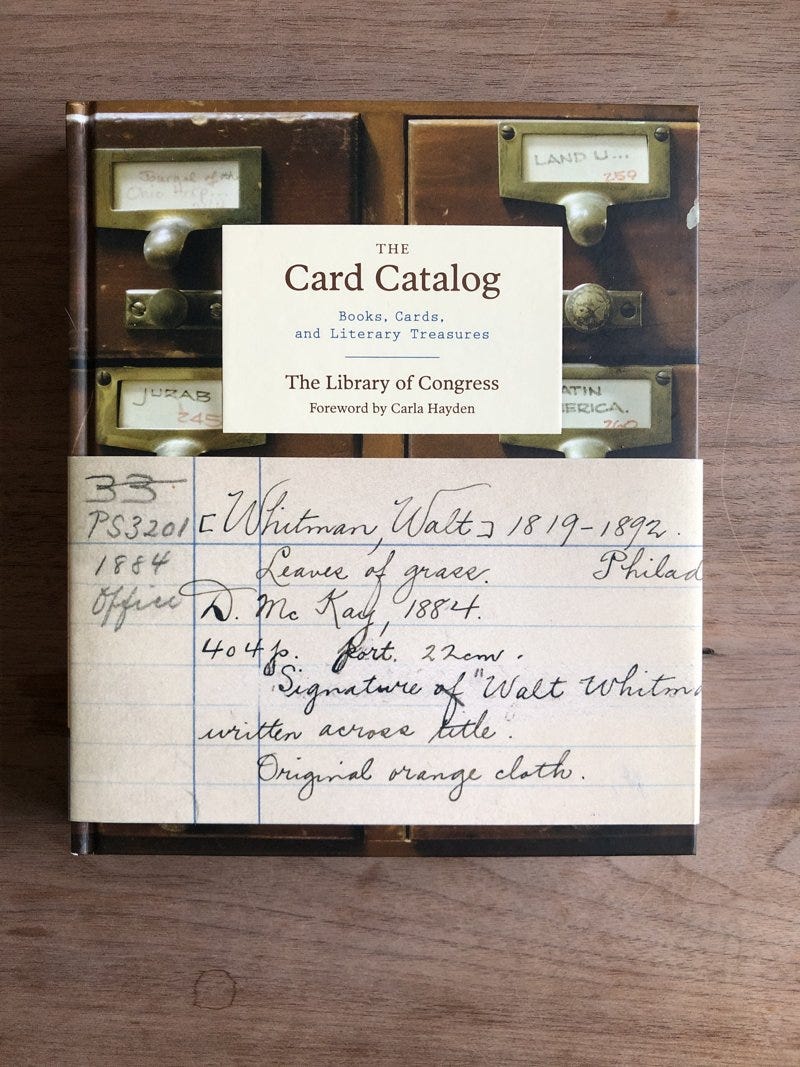 Journal of th
Ohio Herp...
LAND U...
259
THE
Card Catalog
Books, Cards,
and Literary Treasures
The Library of Congress
Foreword by Carla Hayden
JURAB
245
ATIN
ERICA.
260
33
PS3201 [Whitman, Walt] 1819-1892.
1884 Leaves of grass. Philad
Office D. Mc Kay, 1884.
404 p. port. 22cm.
"Signature of "Walt Whitma
written across title.
Original orange cloth.